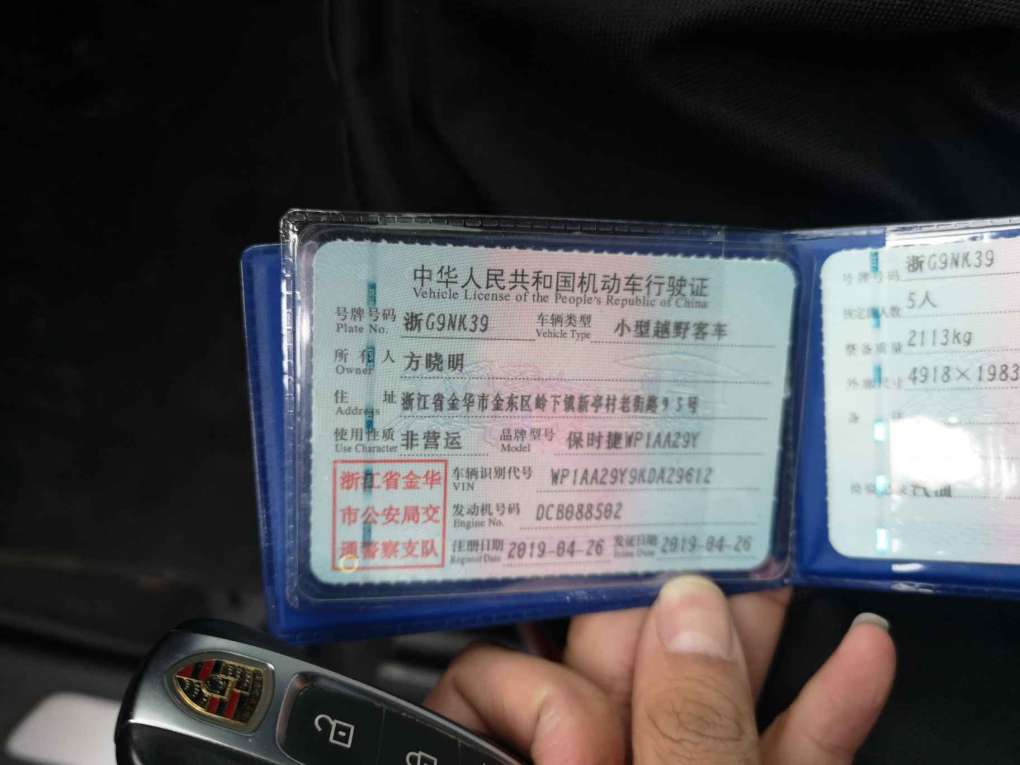 中华人民共和国机动车行驶证
Vehicle License of the People's Republic of China
号牌号码 浙G9NK39 车辆类型 小型越野客车
Plate No. Vehicle Type
所有人 方晓明
Owner
住址 浙江省金华市金东区岭下镇新亭村老街路95号
Address
使用性质 非营运 品牌型号 保时捷WP1AA29Y
Use Character Model
浙江省金华
市公安局交
通警察支队
车辆识别代号 WP1AA29Y9KDA29612
VIN
发动机号码 DCB088502
Engine No.
注册日期 2019-04-26 发证日期 2019-04-26
Register Date Issue Date
号牌号码 浙G9NK39
核定载人数 5人
整备质量 2113kg
外廓尺寸 4918×1983
备注
检验记录 汽油